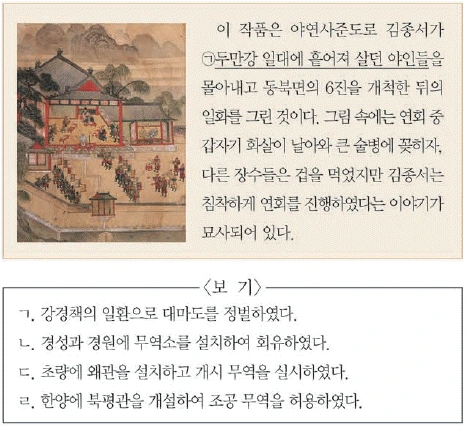 이 작품은 야연사준도로 김종서가
㉠두만강 일대에 흩어져 살던 야인들을
몰아내고 동북면의 6진을 개척한 뒤의
일화를 그린 것이다. 그림 속에는 연회 중
갑자기 화살이 날아와 큰 술병에 꽂히자,
다른 장수들은 겁을 먹었지만 김종서는
침착하게 연회를 진행하였다는 이야기가
묘사되어 있다.
〈보 기〉
ㄱ. 강경책의 일환으로 대마도를 정벌하였다.
ㄴ. 경성과 경원에 무역소를 설치하여 회유하였다.
ㄷ. 초량에 왜관을 설치하고 개시 무역을 실시하였다.
ㄹ. 한양에 북평관을 개설하여 조공 무역을 허용하였다.